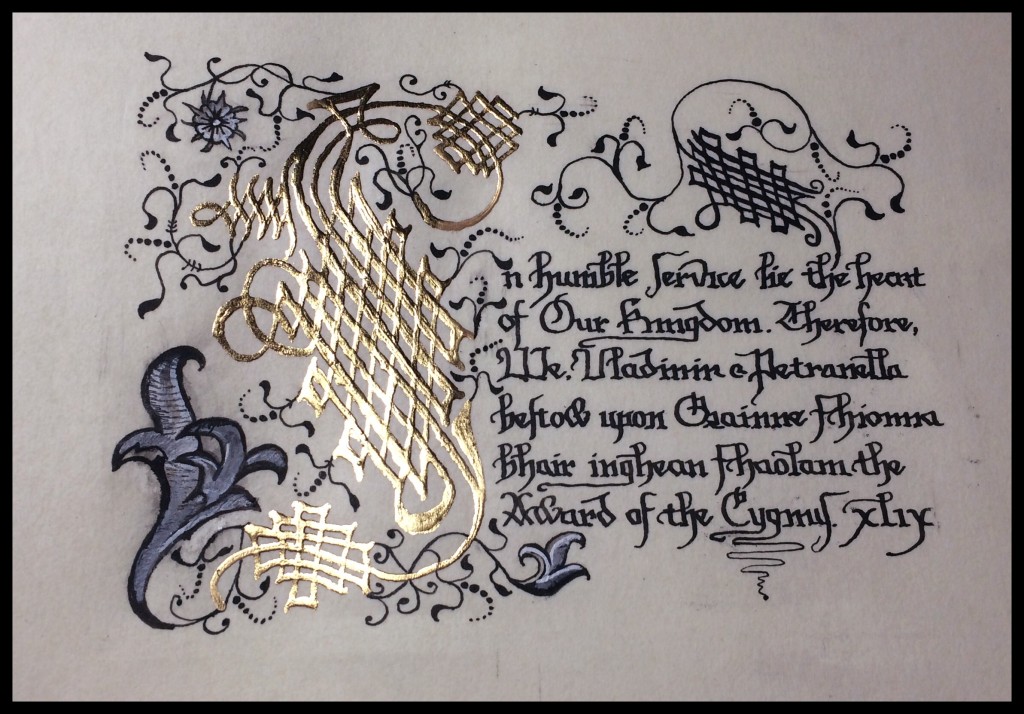 In humble service lie the heart
of Our Kingdom. Therefore,
We, Vladimir & Petranella
bestow upon Grainne Fhionna
bhair inghean Fhaolain the
Award of the Cygnus. XLIX